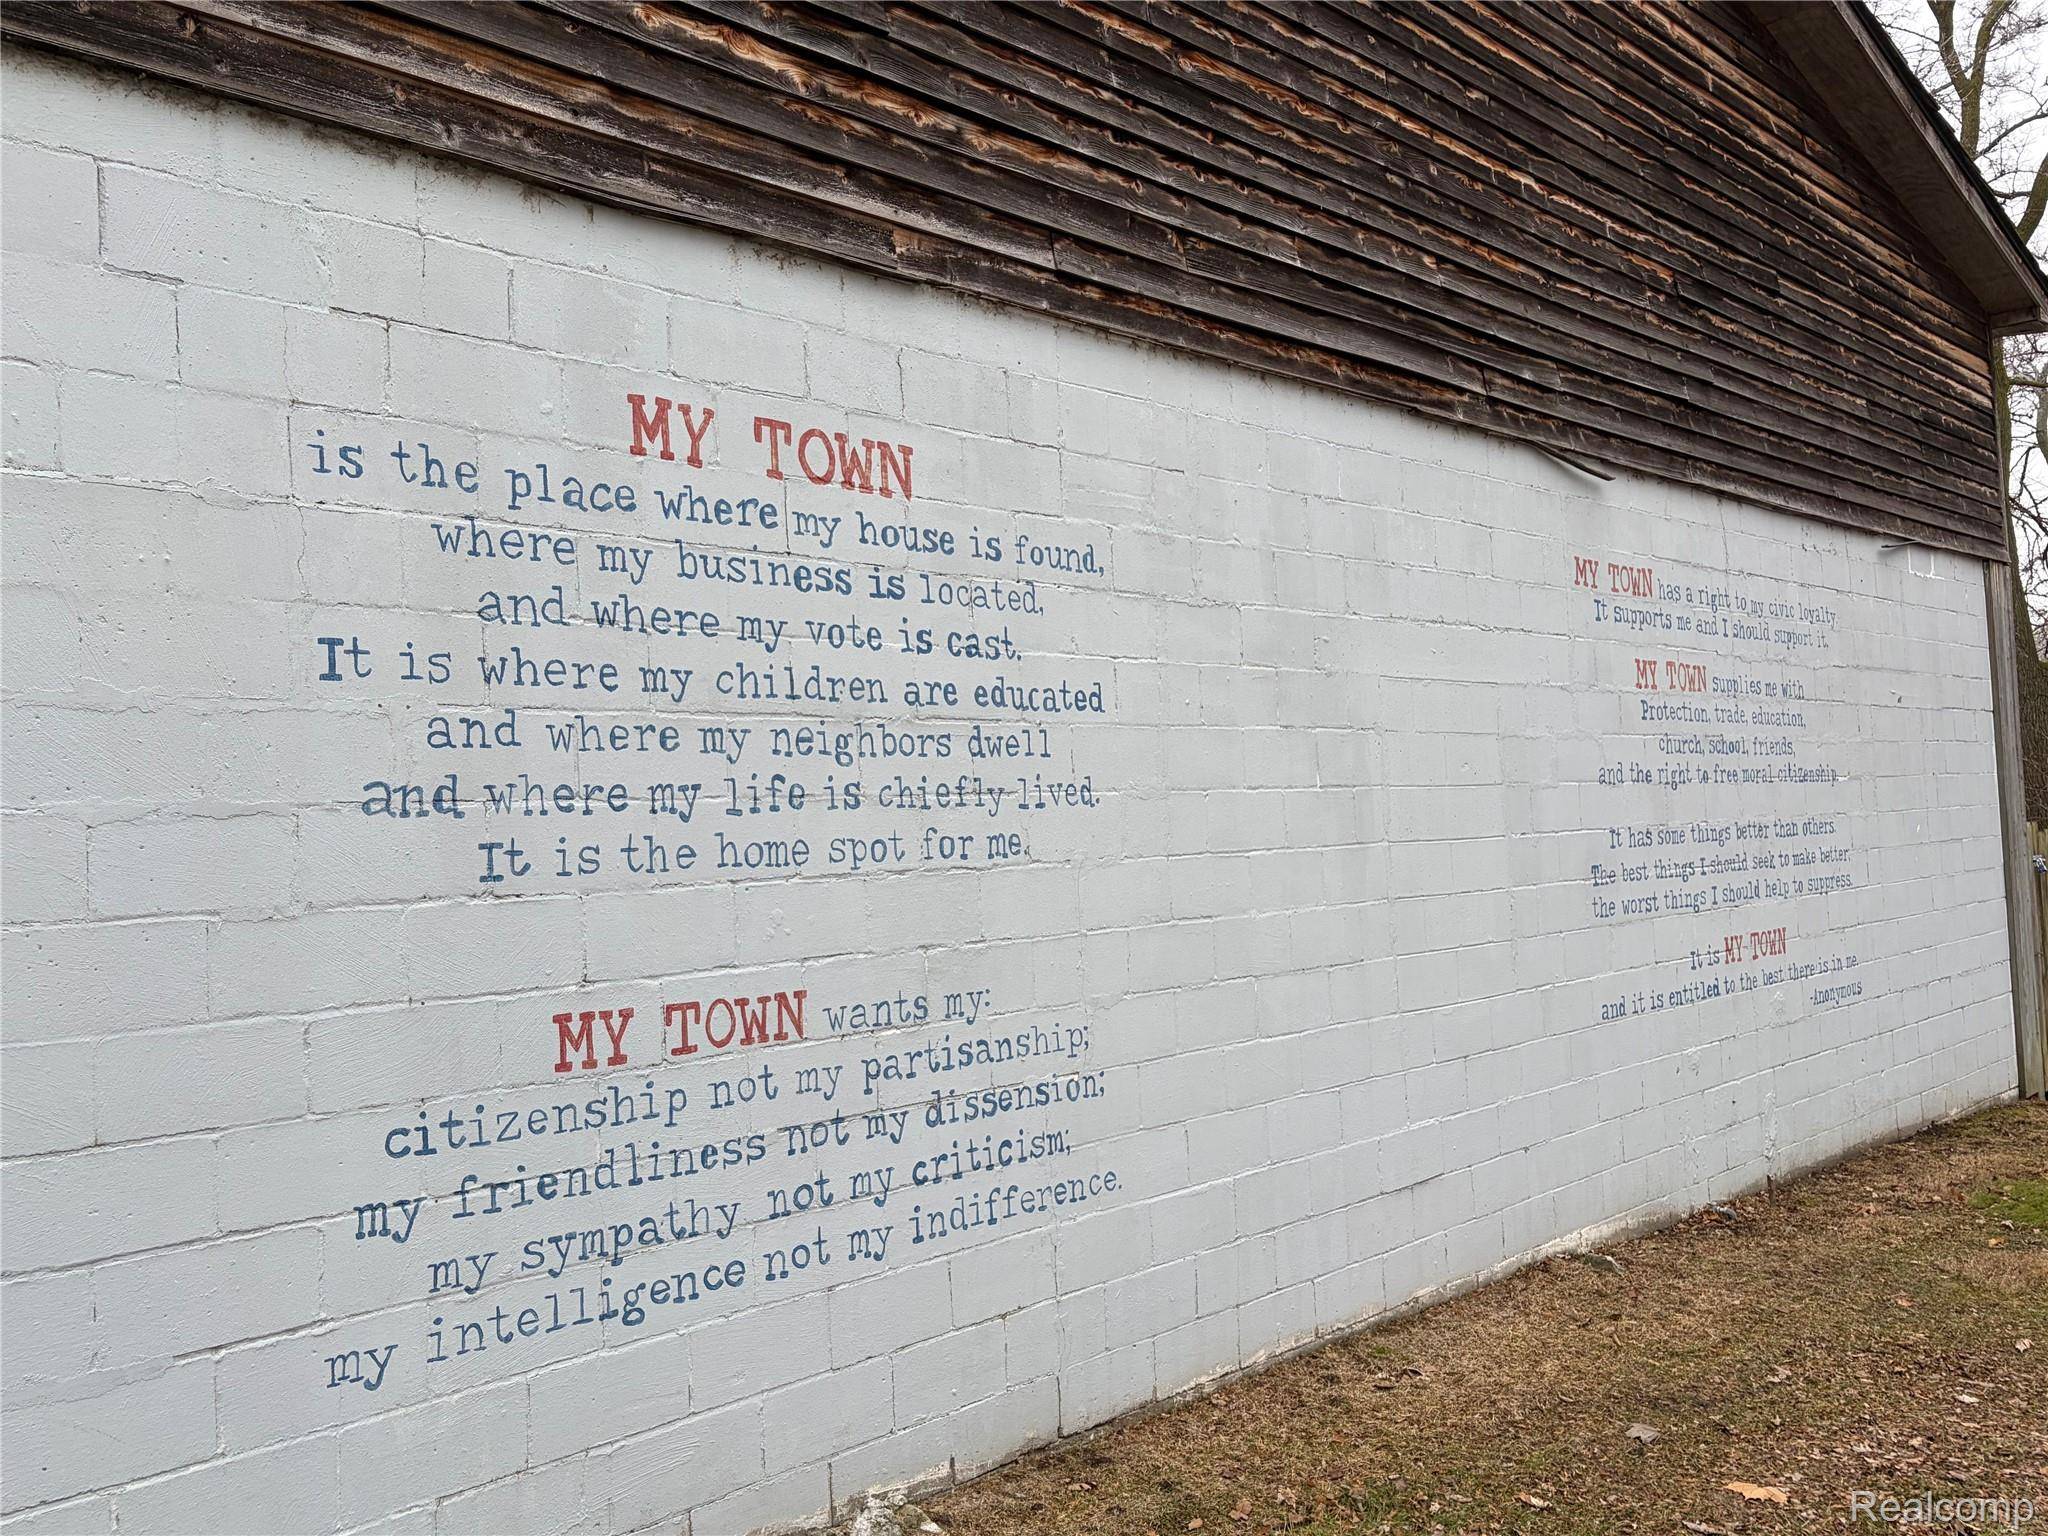 MY TOWN
is the place where my house is found,
where my business is located,
and where my vote is cast.
It is where my children are educated
and where my neighbors dwell
and where my life is chiefly lived.
It is the home spot for me.
MY TOWN wants my:
citizenship not my partisanship;
my friendliness not my dissension;
my sympathy not my criticism;
my intelligence not my indifference.
MY TOWN has a right to my civic loyalty.
It supports me and I should support it.
MY TOWN supplies me with
Protection, trade, education,
church, school, friends,
and the right to free moral citizenship.
It has some things better than others.
The best things I should seek to make better.
the worst things I should help to suppress.
It is MY TOWN
and it is entitled to the best there is in me.
-Anonymous
Realcomp